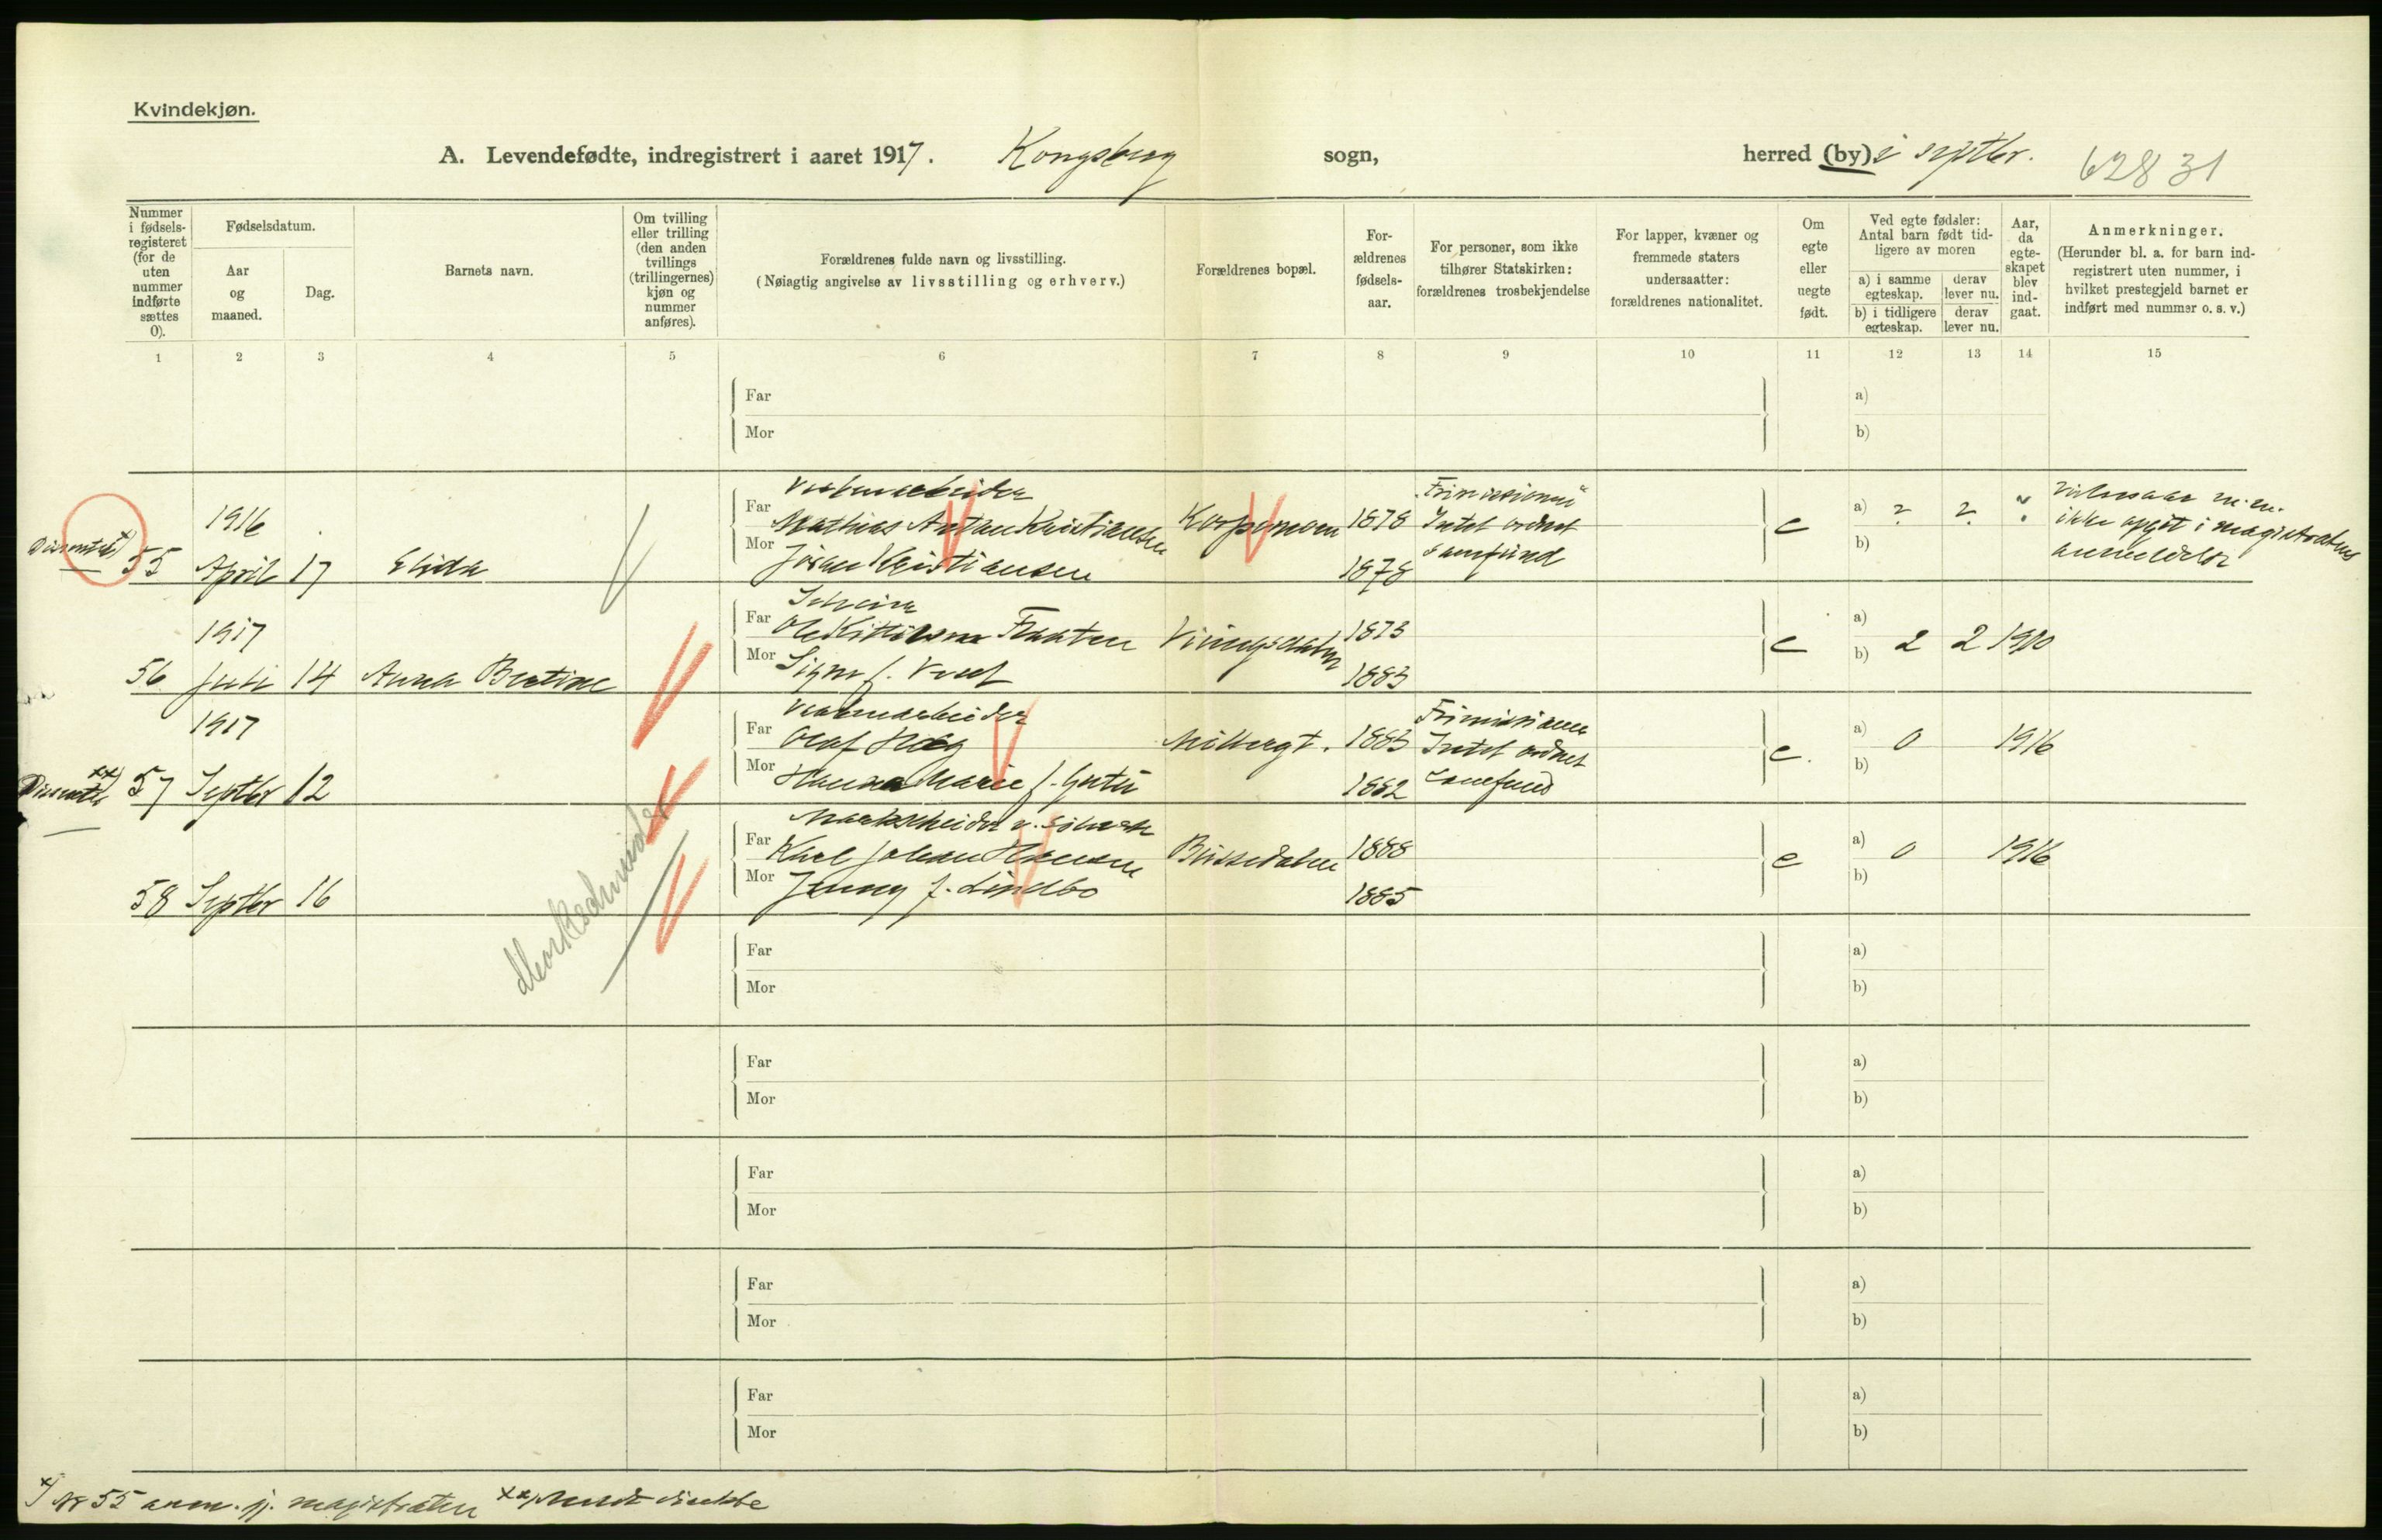 Kvindekjøn.
A. Levendefødte, indregistrert i aaret 1917. Kongsberg sogn, herred (by) i septbr. 62831
Nummer i fødsels-registeret (for de uten nummer indførte sættes 0).
Fødselsdatum.
Aar og maaned.
Dag.
Barnets navn.
Om tvilling eller trilling (den anden tvillings (trillingernes) kjøn og nummer anføres).
Forældrenes fulde navn og livsstilling.
(Nøiagtig angivelse av livsstilling og erhverv.)
Forældrenes bopæl.
For-ældrenes fødsels-aar.
For personer, som ikke tilhører Statskirken: forældrenes trosbekjendelse
For lapper, kvæner og fremmede staters undersaatter: forældrenes nationalitet.
Om egte eller uegte født.
Ved egte fødsler: Antal barn født tid-ligere av moren
a) i samme egteskap.
derav lever nu.
b) i tidligere egteskap.
derav lever nu.
Aar, da egte-skapet blev ind-gaat.
Anmerkninger.
(Herunder bl. a. for barn ind-registrert uten nummer, i hvilket prestegjeld barnet er indført med nummer o. s. v.)
1 2 3 4 5 6 7 8 9 10 11 12 13 14 15
Far a)
Mor b)
1916
55 April 17 Elida
Far Mathias Antan Kristiansen 1878 Intet ordnet samfund e a) ? ? ?
Mor Kristiansen 1878 b)
ikke opgit i magistratens
1917
56 Juli 14 Anna Bertine
Far Ole 1873 e a)
Mor Signe f. 1883 b) 2 2 1900
1917
57 Septbr 12
Far Olaf 1883 Intet ordnet Samfund e. a) 0 1916
Mor Hanna Marie f. 1882 b)
58 Septbr 16
Markscheider v.
Far Karl Johan Hansen 1888 e a) 0 1916
Mor Jenny f. Lindbo 1885 b)
Far a)
Mor b)
Far a)
Mor b)
Far a)
Mor b)
Far a)
Mor b)
Far a)
Mor b)
x) Nr 55 anm. gj. magistraten xx)